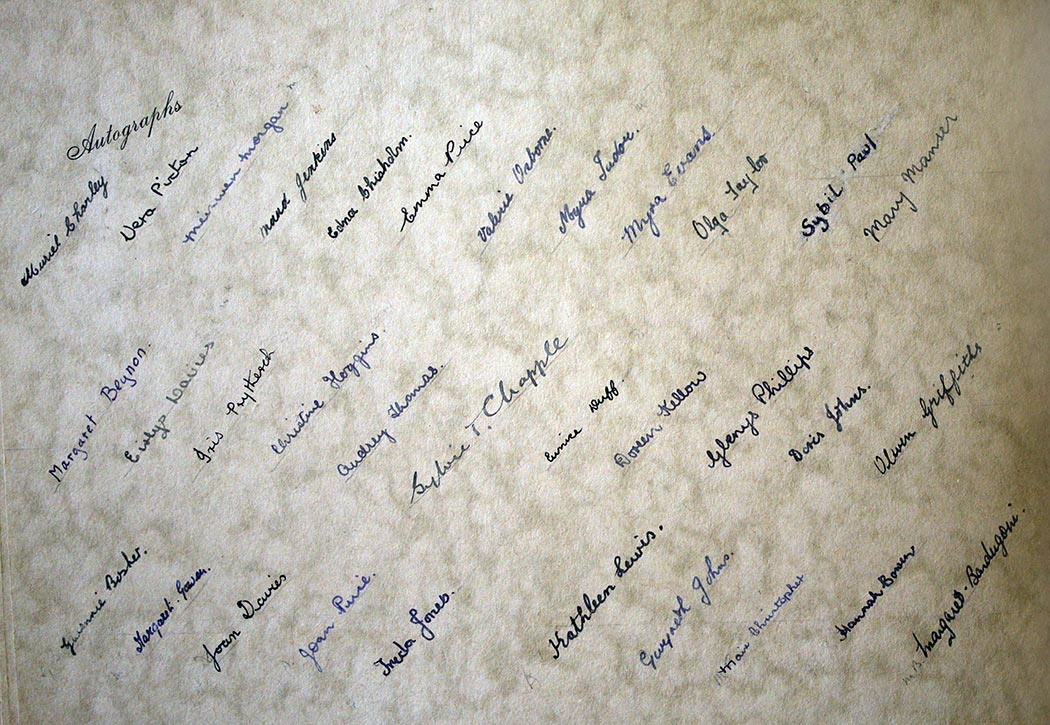 Autographs
Muriel Charley
Vera Picton
Mirwen Morgan
Maud Jenkins
Edna Chisholm.
Emma Price
Valerie Osborne.
Myra Tudor.
Myra Evans
Olga Taylor
Sybil Past
Mary Manser
Margaret Beynon.
Davies
Iris
Christine Hoggins.
Audrey Thomas.
Sylvie T. Chapple
Eunice Duff.
Doreen Kellow
Glenys Phillips
Doris Johns.
Olwen Griffiths
Bosher.
Margaret
Joan Davies
Joan Pirie.
Freda Jones.
Kathleen Lewis.
Gwyneth Johns.
Christopher
Hannah Bowen
Margaret Bardugoni.